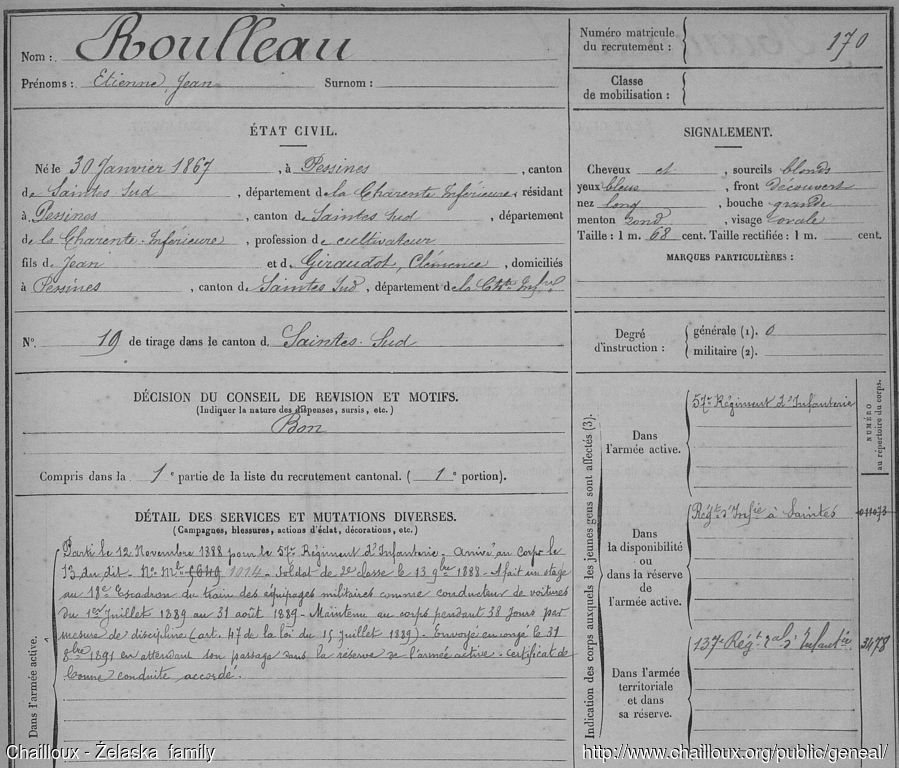 Nom : Roulleau
Prénoms : Etienne, Jean Surnom :
Numéro matricule du recrutement : 170
Classe de mobilisation :
ÉTAT CIVIL.
Né le 30 Janvier 1867, à Pessines, canton
de Saintes Sud, département de la Charente Inférieure, résidant
à Pessines, canton de Saintes Sud, département
de la Charente-Inférieure, profession de cultivateur
fils de Jean et de Giraudot, Clémence, domiciliés
à Pessines, canton de Saintes Sud, département de la Chte Infre
SIGNALEMENT.
Cheveux et, sourcils blonds
yeux bleus, front découvert
nez long, bouche grande
menton rond, visage ovale
Taille : 1 m. 68 cent. Taille rectifiée : 1 m. cent.
MARQUES PARTICULIÈRES :
N°. 19 de tirage dans le canton d. Saintes-Sud
Degré d'instruction :
générale (1). 0
militaire (2).
DÉCISION DU CONSEIL DE REVISION ET MOTIFS.
(Indiquer la nature des dispenses, sursis, etc.)
Bon
Compris dans la 1e partie de la liste du recrutement cantonal. ( 1e portion).
DÉTAIL DES SERVICES ET MUTATIONS DIVERSES.
(Campagnes, blessures, actions d'éclat, décorations, etc.)
Dans l'armée active.
Parti le 12 Novembre 1888 pour le 57e Régiment d'Infanterie - Arrivé au corps le
13 du dit - No Mle 1914 - Soldat de 2e classe le 13 9bre 1888 - A fait un stage
au 18e Escadron du train des équipages militaires comme conducteur de voitures
du 1er Juillet 1889 au 31 août 1889 - Maintenu au corps pendant 38 Jours par
mesure de discipline (art. 47 de la loi du 15 Juillet 1889) - Envoyé en congé le 31
8bre 1891 en attendant son passage dans la réserve de l'armée active - certificat de
bonne conduite accordé.
Indication des corps auxquels les jeunes gens sont affectés (3).
NUMÉRO au répertoire du corps.
Dans l'armée active.
57e Régiment d'Infanterie
Dans la disponibilité ou dans la réserve de l'armée active.
Régt d'Infie à Saintes
Dans l'armée territoriale et dans sa réserve.
137e Régt tal d'Infantie
3478
Chailloux - Želaska family
http://www.chailloux.org/public/geneal/